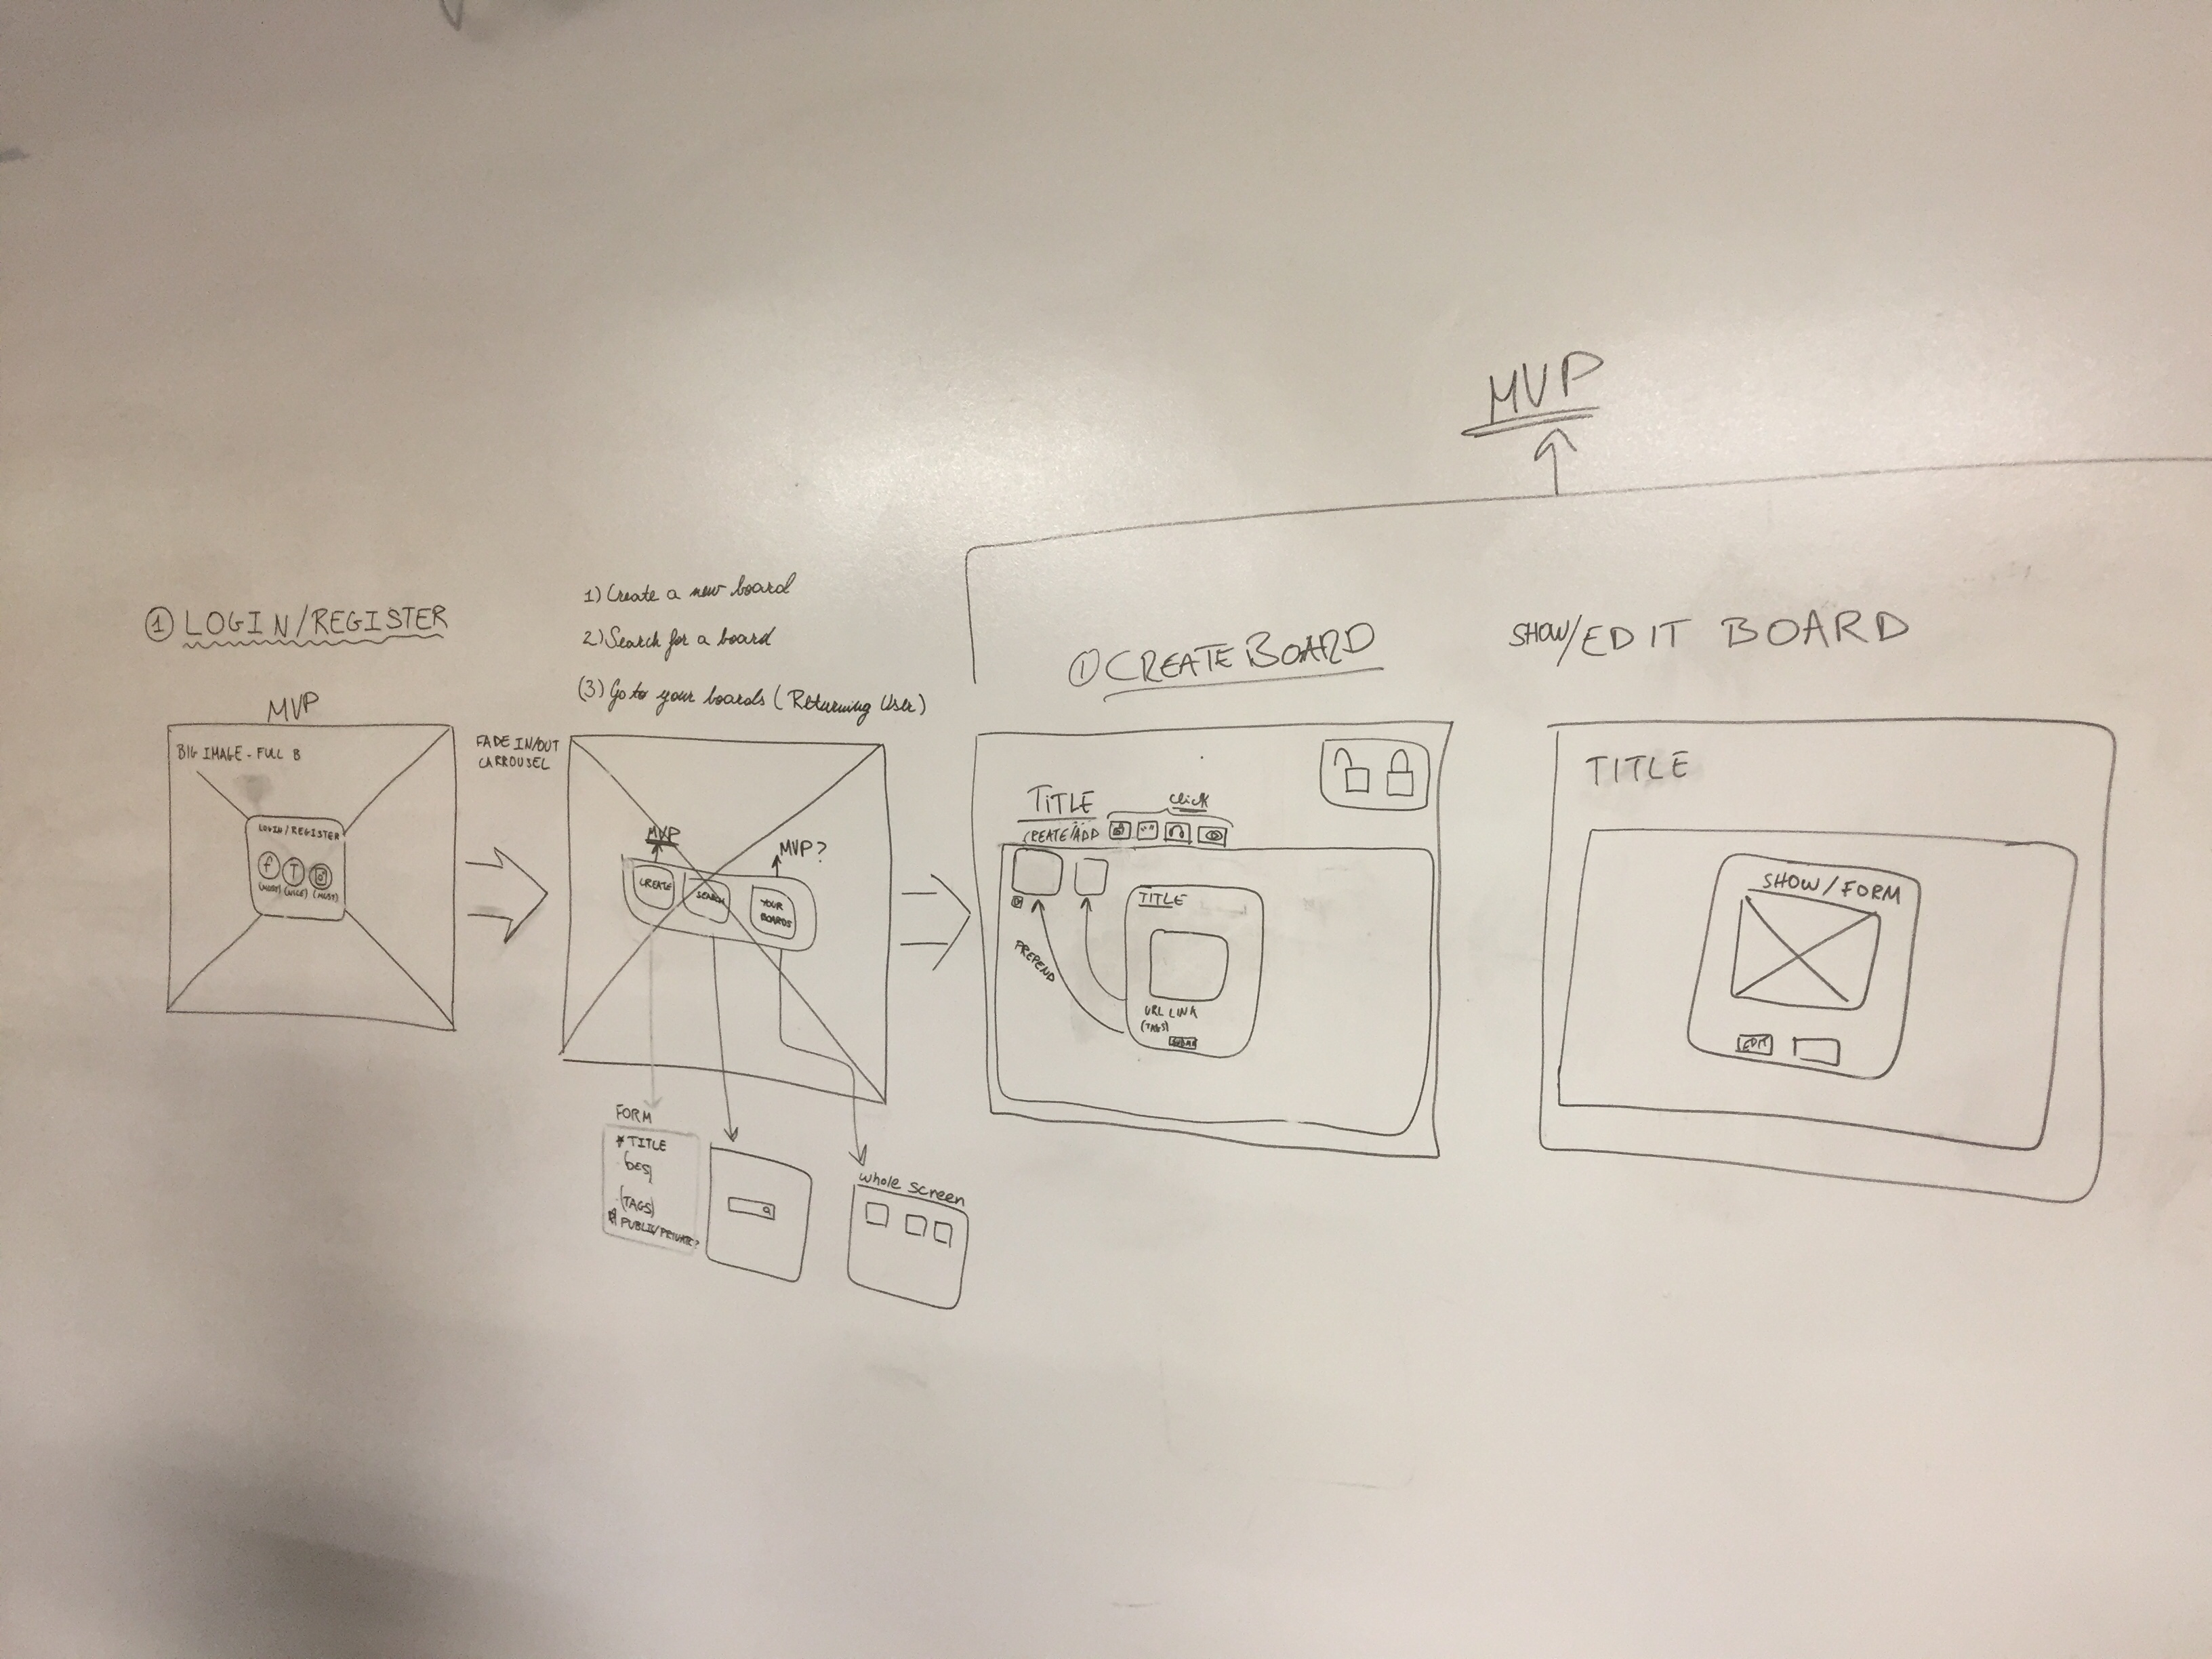 MVP
① LOGIN/REGISTER
MVP
BIG IMAGE - FULL B
LOGIN/REGISTER
f T
(MUST) (NICE) (MUST)
FADE IN/OUT
CARROUSEL
1) Create a new board
2) Search for a board
(3) Go to your boards (Returning User)
MVP
MVP?
CREATE
SEARCH
YOUR
BOARDS
FORM
* TITLE
DES
(TAGS)
PUBLIC/PRIVATE?
whole screen
① CREATE BOARD
TITLE
click
CREATE/ADD
PREPEND
TITLE
URL LINK
(TAGS)
SHOW/EDIT BOARD
TITLE
SHOW/FORM
EDIT